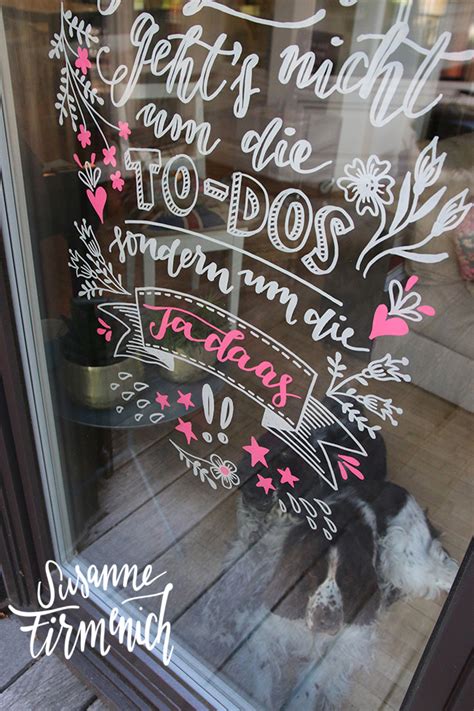 geht's nicht
um die
TO-DOS
sondern um die
Tadaas
!!
Susanne
Firmenich